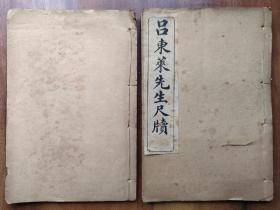 呂東萊先生尺牘